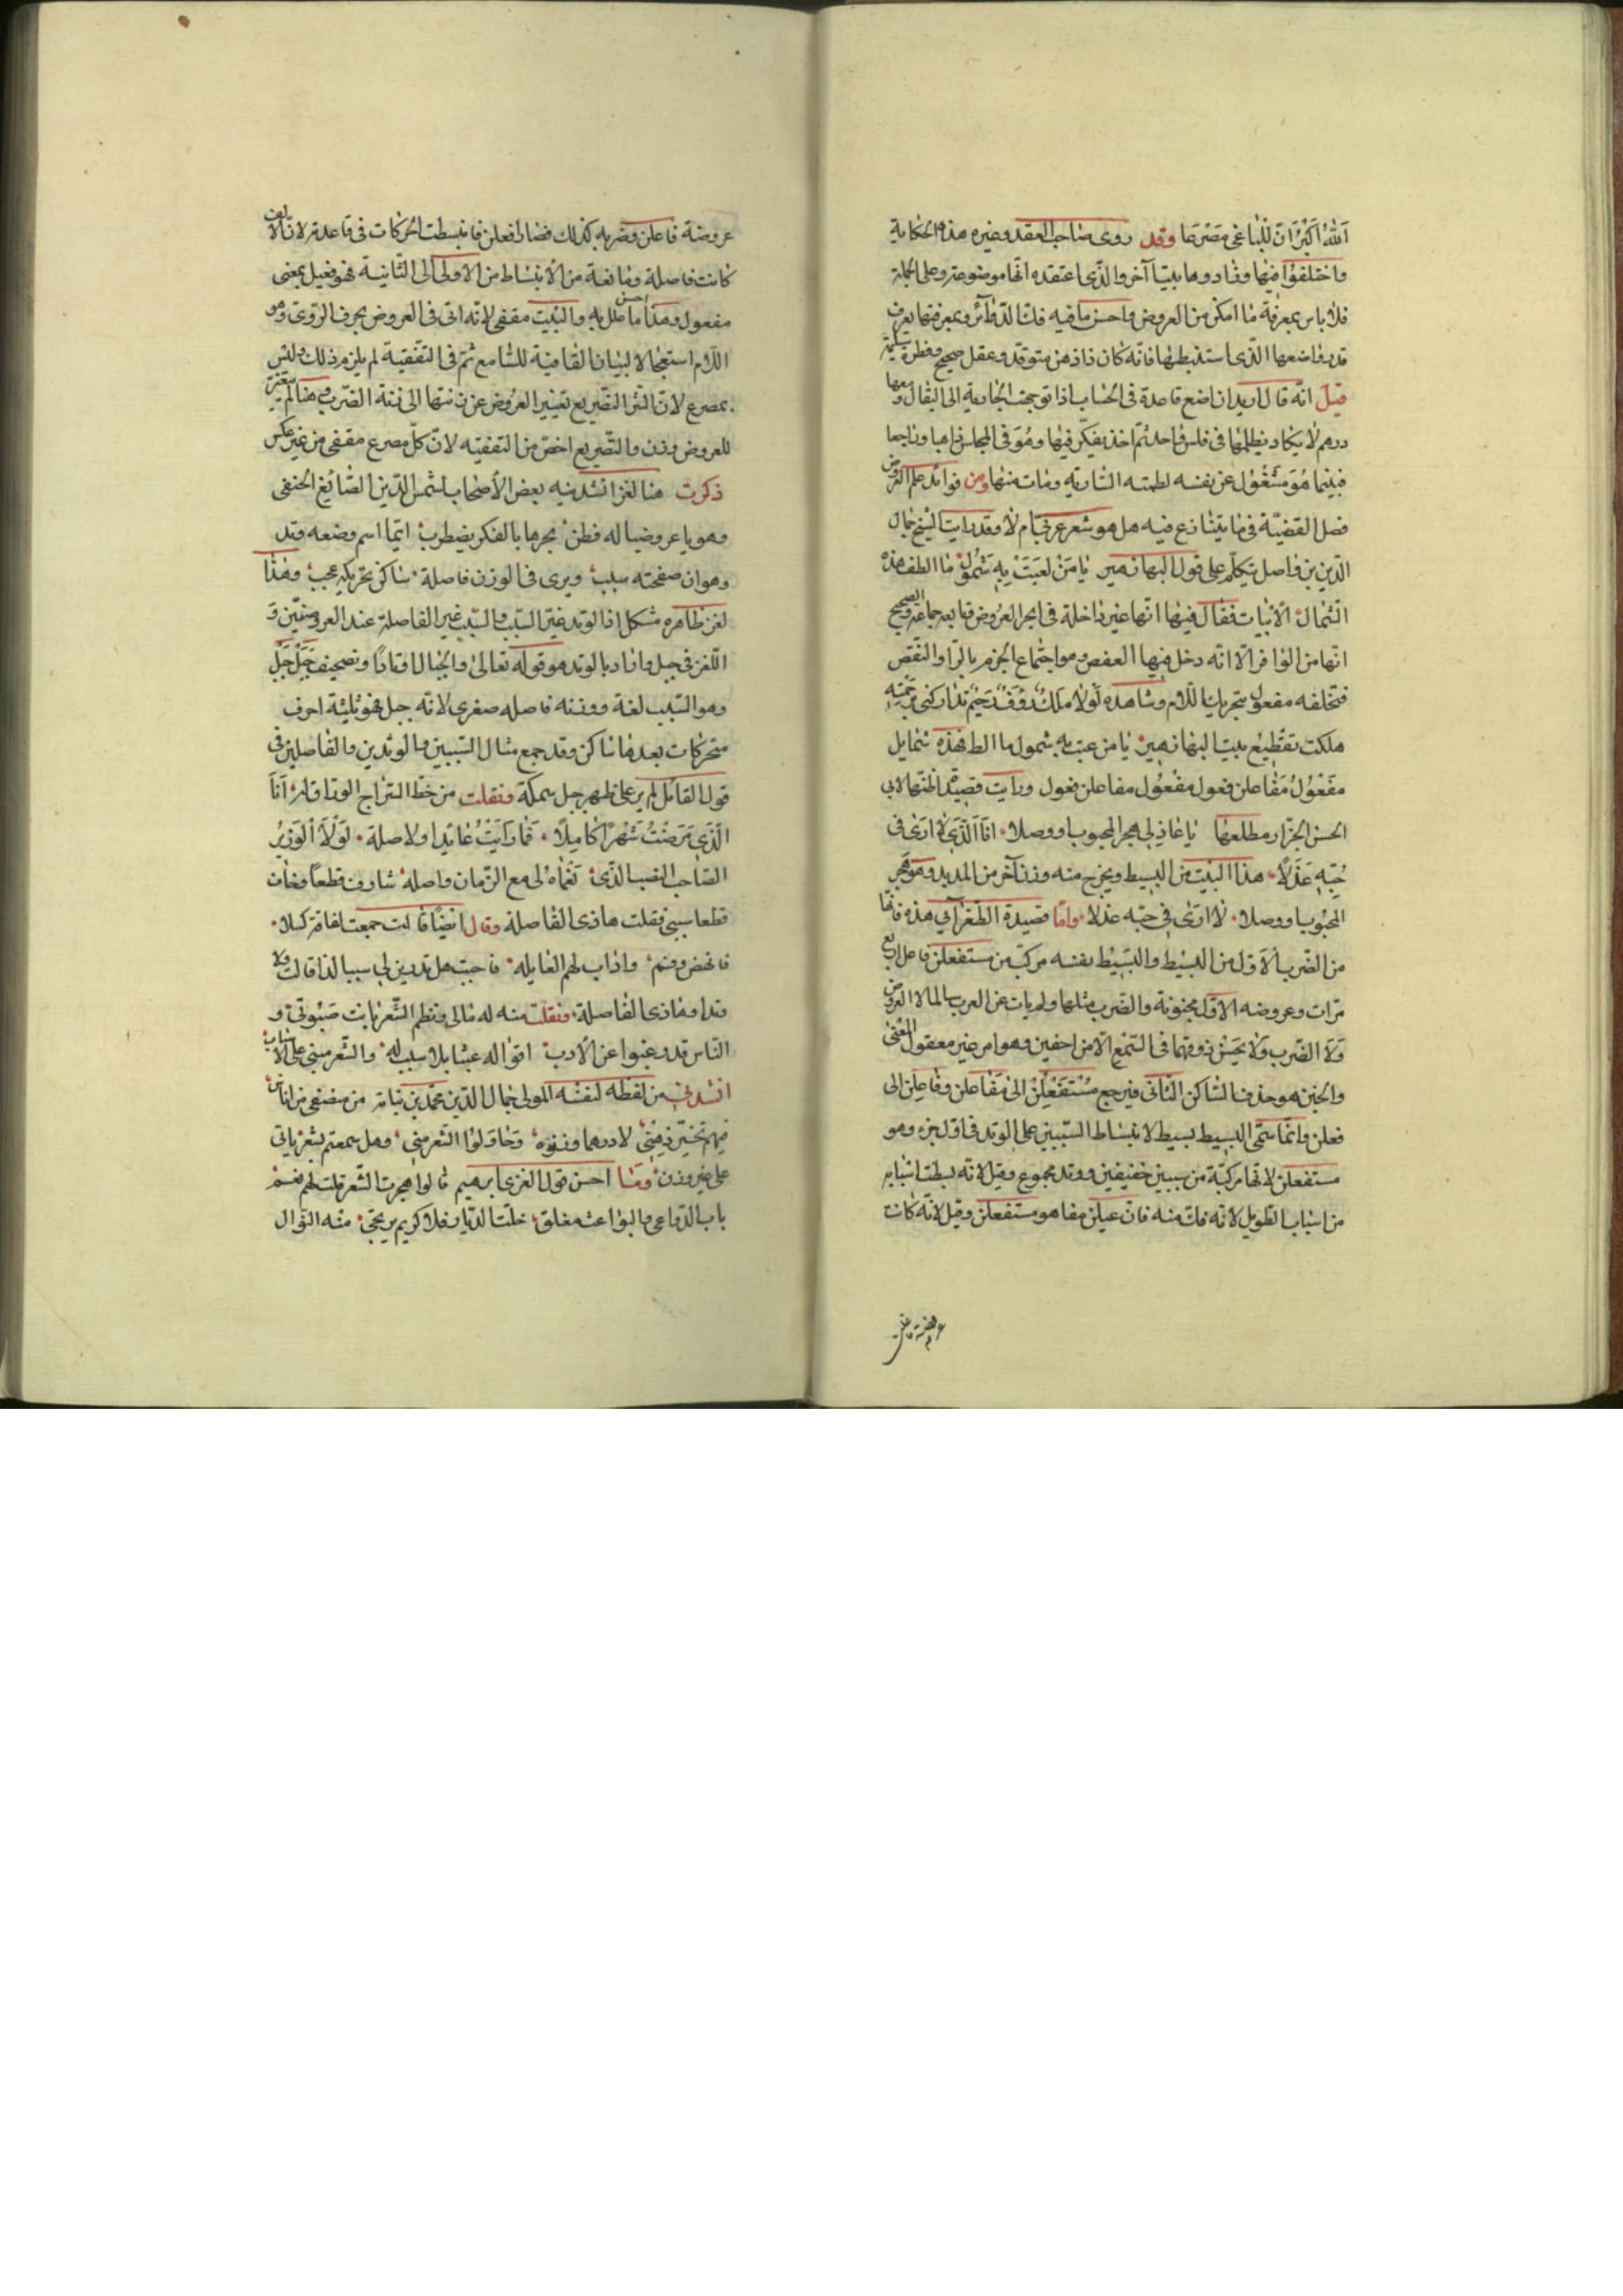 الله اكبر ان للباغي مصرعا وقد روى صاحب العقد وغيره هذه الحكاية
واختلفوا فيها وزادوها بيتا آخر والذي اعتقده انها موضوعة وعلى الجملة
فلا باس بمعرفة ما امكن من العروض واحسن ما فيه فك الدوائر وبمعرفتها يعرف
قدر واضعها الذي استنبطها فانه كان ذا ذهن متوقد وعقل صحيح وفطرة سليمة
قيل انه قال اريد ان اضع قاعدة في الحساب اذا توجهت الجارية الى البقال ومعها
درهم لا يكاد يظلمها في فلس واحد ثم اخذ يفكر فيها وهو في المجلس ذاهبا وراجعا
فبينما هو مشغول عن نفسه لطمته السارية ومات منها ومن فوائد علم العروض
فصل القضية في ما يتنازع فيه هل هو شعر عربي ام لا وقد رايت الشيخ جمال
الدين بن واصل تكلم على قول البها زهير يا من لعبت به شمول ما الطف هذه
الشمال الابيات فقال فيها انها غير داخلة في ابحر العروض وتابعه جماعة والصحيح
انها من الوافر الا انه دخل فيها العقص وهو اجتماع الخرم بالرا والنقص
فتخلفه مفعول بتحريك اللام وشاهده لولا ملك رؤف رحيم تداركني برحمته
هلكت تقطيع بيت البها زهير يا من عبت به شمول ما الطفهذه شمايل
مفعول مفاعلن فعول مفعول مفاعلن فعول ورايت قصيدة اظنها لابي
الحسن الجزار مطلعها يا عاذلي هجر المحبوب او وصلا انا الذي لا ارى في
حبه عذلا هذا البيت من البسيط ويخرج منه وزن آخر من المديد وهو هجر
المحبوب او وصلا لا ارى في حبه عذلا واما قصيدة الطغرآئي هذه فانها
من الضرب الاول من البسيط والبسيط نفسه مركب من مستفعلن فاعلن اربع
مرات وعروضه الاول مخبونة والضرب مثلها ولم يات عن العرب سالما لا العروض
ولا الضرب ولا يحسن ذوقهما في السمع الا مزاحفين وهو امر غير معقول المعنى
والخبن هو حذف الساكن الثاني فيرجع مستفعلن الى مفاعلن وفاعلن الى
فعلن وانما سمي البسيط بسيط لانبساط السببين على الوتد في اول جزه وهو
مستفعلن لانها مركبة من سببين خفيفين ووتد مجموع وقيل لانه بسطت اسبابه
من اسباب الطويل لانه فك منه فان عيلن مفا هو مستفعلن وقيل لانه كانت
عروضة فاعلن
عروضة فاعلن وضربه كذلك فصار فعلن فانبسطت الحركات في قاعدته لان الالف
كانت فاصلة ومانعة من الانبساط من الاولى الى الثانية فهو فعيل بمعنى
مفعول وهذا احسن ما علل به والبيت مقفى لانه اتى في العروض بحرف الروي وهو
اللام استعجالا لبيان القافية للسامع ثم في التقفية لم يلزم ذلك وليس
بمصرع لان التصريع تغيير العروض عن زنتها الى زنة الضرب وهنا لم يتغير
للعروض وزن والتصريع اخص من التقفيه لان كل مصرع مقفى من غير عكس
ذكرت هنا لغزا انشدنيه بعض الاصحاب لشمس الدين الصائغ الحنفي
وهو يا عروضيا له فطن بحرها بالفكر يضطرب ايما اسم وضعه وتد
وهو ان صحفته سبب ويرى في الوزن فاصلة ساكن تحريكه عجب وهذا
لغز ظاهره مشكل اذ الوتد غير السبب والسبب غير الفاصلة عند العروضيين و
اللغز في جبل واراد بالوتد هو قوله تعالى والجبال اوتادا وتصحيف جبل حبل
وهو السبب لغة ووزنه فاصله صغرى لانه جبل فهو ثلثة احرف
متحركات بعدها ساكن وقد جمع مثال السببين والوتدين والفاصلين في
قول القائل لم ير على ظهر جبل سمكة ونقلت من خط السراج الوراق له انا
الذي مرضت شهرا كاملا فما رايت عايدا ولا صلة لولا الوزير
الصاحب الندب الذي نعماه لي مع الزمان واصله شارف قطعا وخاف
قطعا سببي فقلت هاذي الفاصلة وقال ايضا قالت جمعت لفاقة كسلا
فانهض وقم واداب لهم العايله فاجبت هل تدرين لي سببا لذا قالت ولا
وتدا وهاذي الفاصلة ونقلت منه له مالي ونظم الشعر بانت صبوتي و
الناس قد رغبوا عن الادب اقواله عبثا بلا سبب له والشعر مبني على الاسباب
انشدني من لفظه لنفسه المولى جمال الدين محمد بن نباتة من منصفي من اناس
فيهم تحير ذهني لا درهما وزنوه وحاولوا الشعر مني وهل سمعتم بشعر ياتي
على غير وزن وما احسن قول الغزي ابرهيم قالوا هجرت الشعر قلت لهم نعم
باب الدواعي والبواعث مغلق خلت الديار فلا كريم يرتجى منه النوال